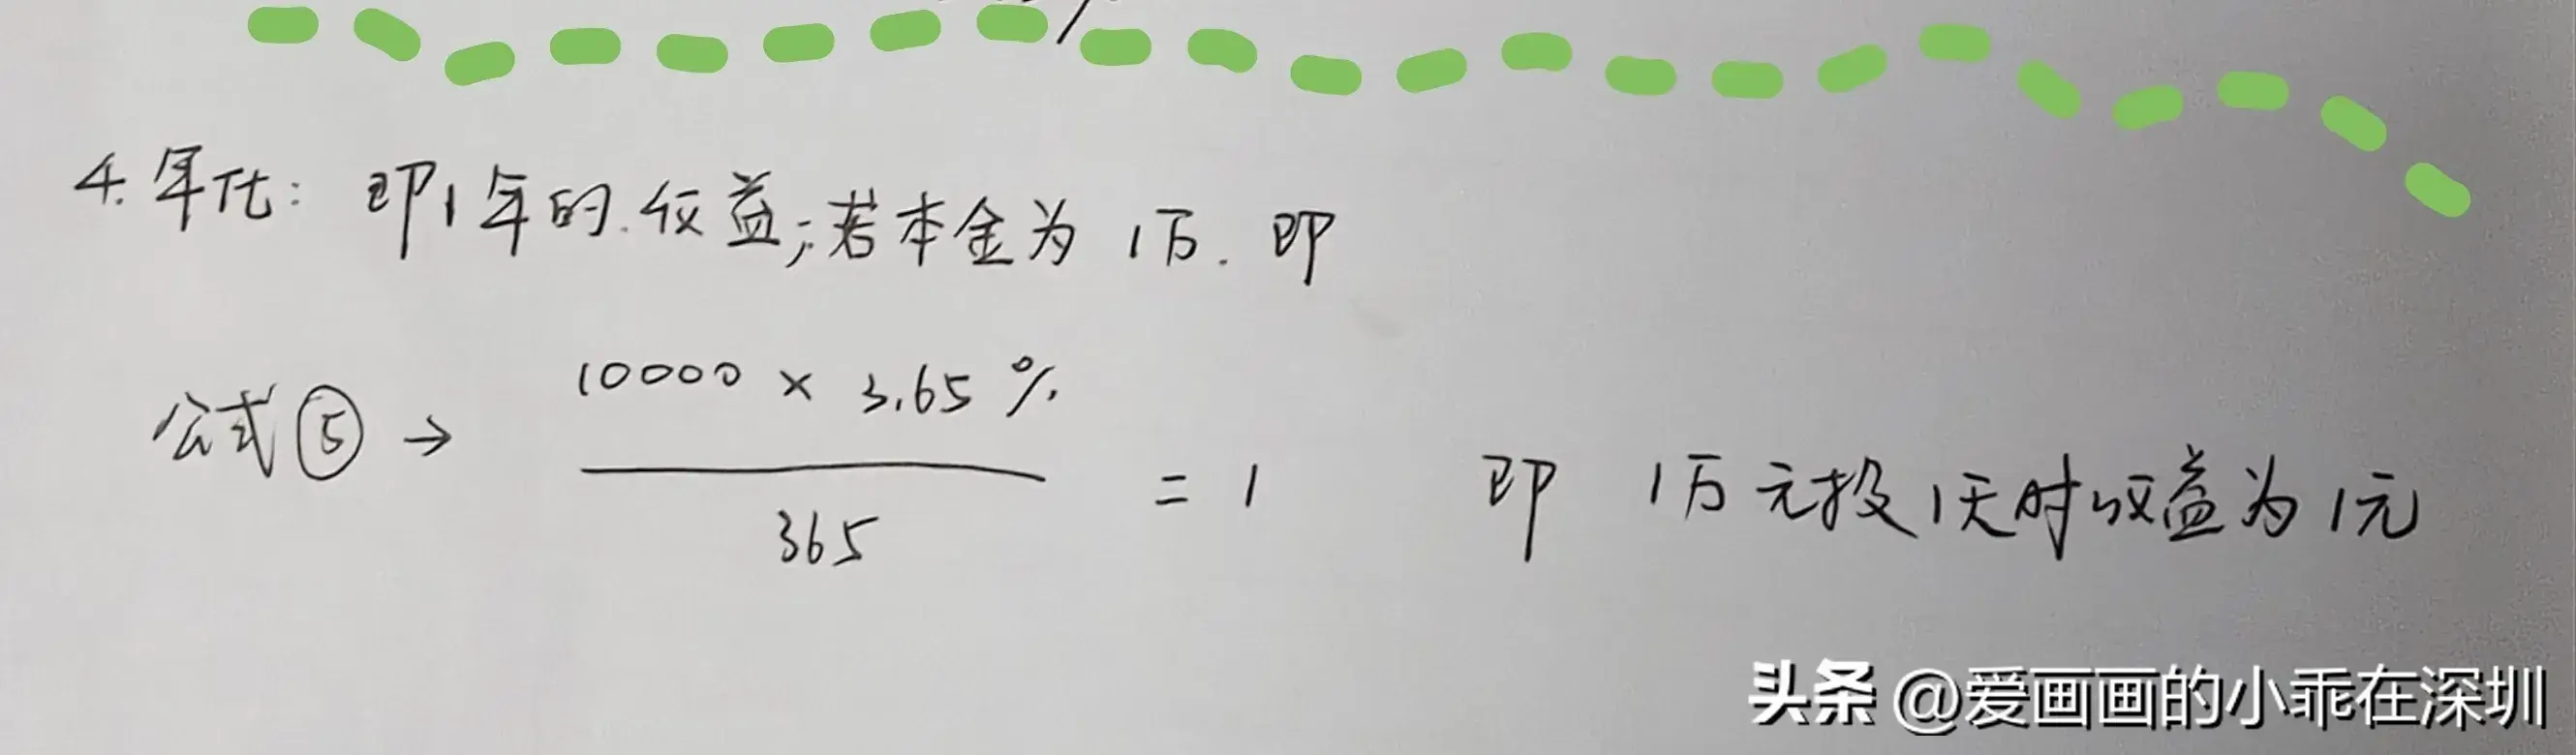 4.年化：即1年的收益；若本金为1万.即
公式⑤→ 10000×3.65%
365
=1 即 1万元投1天时收益为1元
头条 @爱画画的小乖在深圳